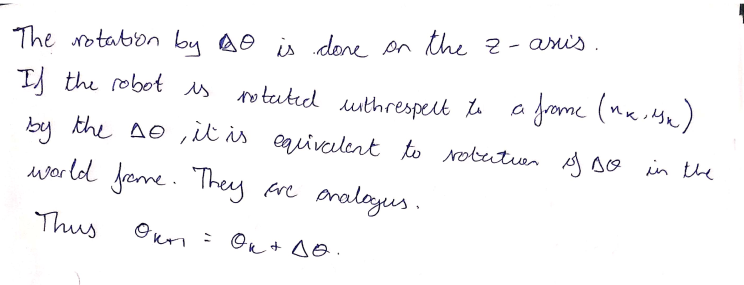 The rotation by Δθ is done on the z-axis.
If the robot is rotated with respect to a frame (xₖ, yₖ)
by the Δθ, it is equivalent to rotation of Δθ in the
world frame. They are analogus.
Thus θₖ₊₁ = θₖ + Δθ.